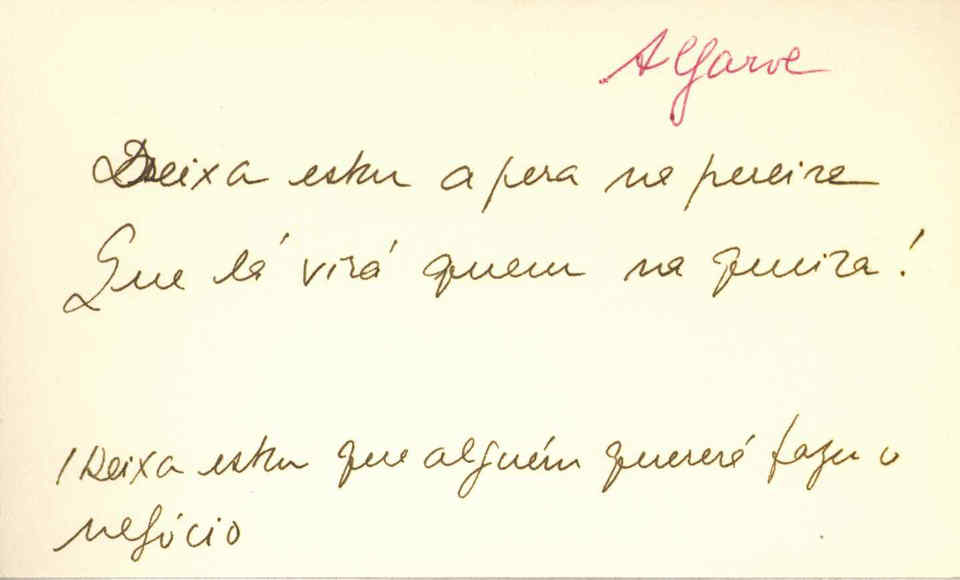 Algarve
Deixa estar a pera na pereira
Que lá virá quem na queira!
(Deixa estar que alguém quererá fazer o
negócio